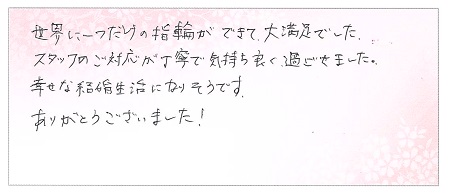 世界に一つだけの指輪ができて、大満足でした。
スタッフのご対応が丁寧で気持ち良く過ごせました。
幸せな結婚生活になりそうです。
ありがとうございました!